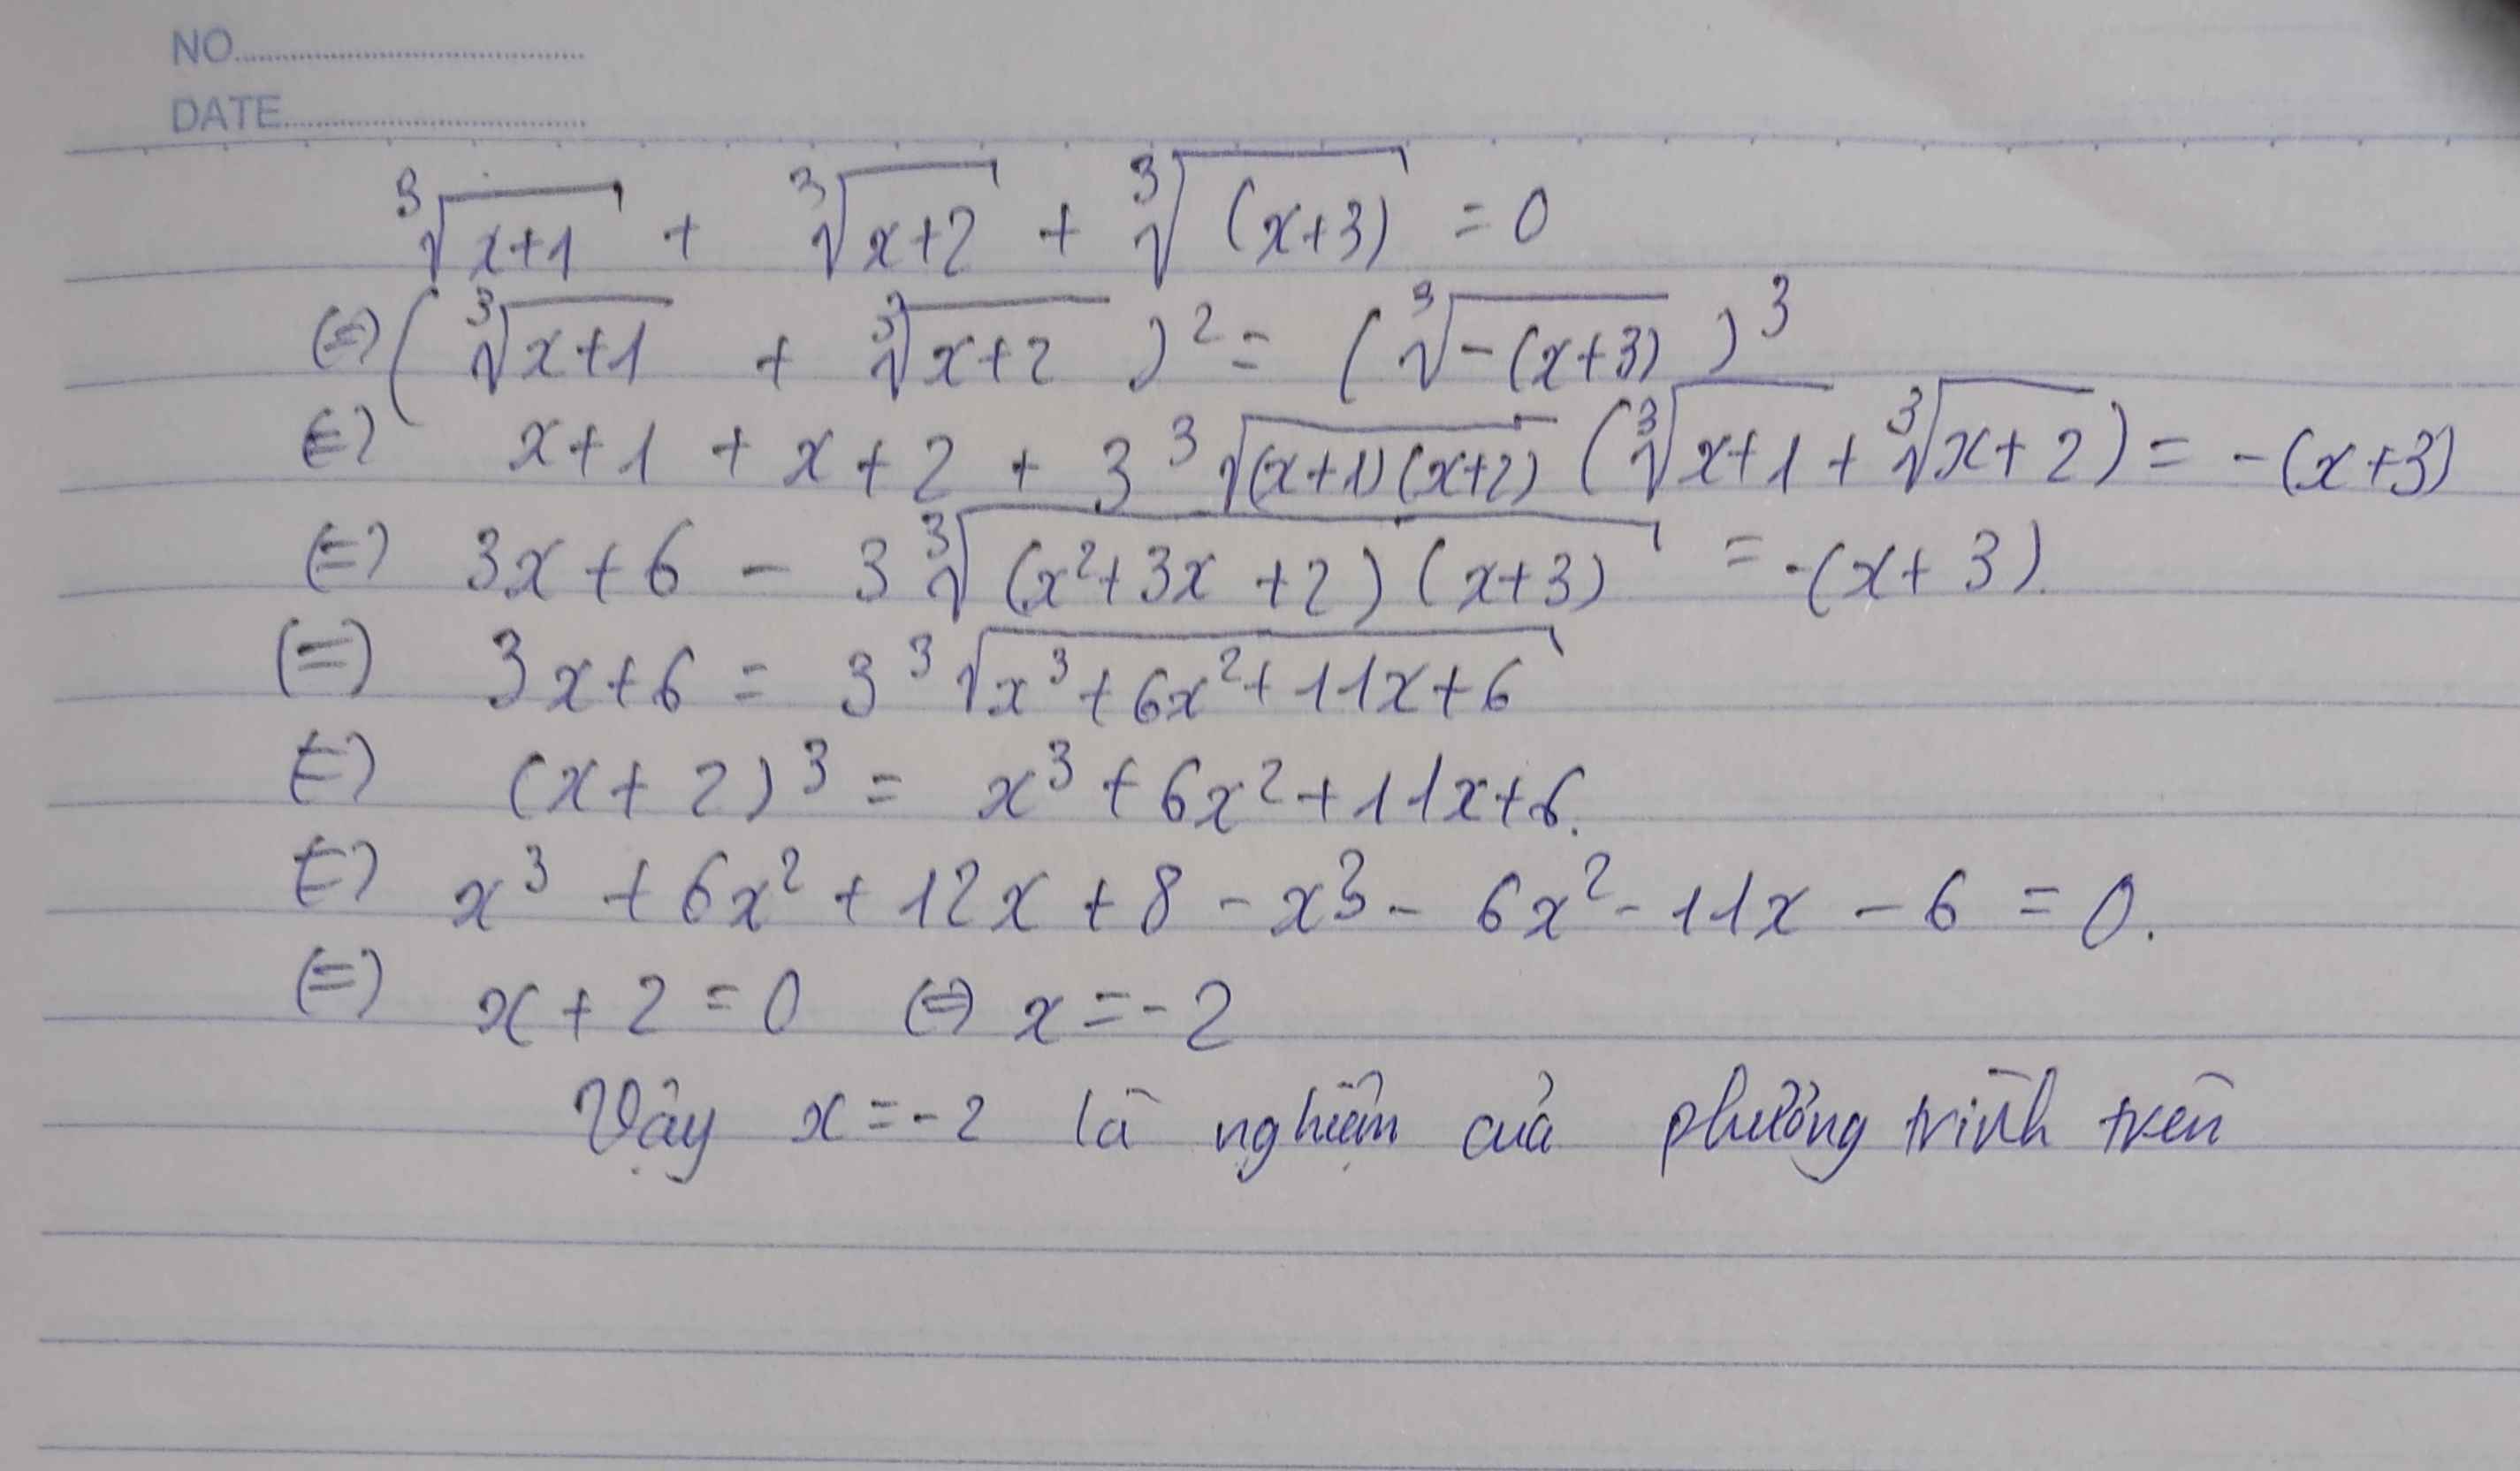 NO
DATE
∛(x+1) + ∛(x+2) + ∛((x+3)) = 0
(=) (∛(x+1) + ∛(x+2))² = (∛(-(x+3)))³
(=) x+1 + x+2 + 3∛((x+1)(x+2)) (∛(x+1) + ∛(x+2)) = -(x+3)
(=) 3x+6 - 3∛((x²+3x+2)(x+3)) = -(x+3).
(=) 3x+6 = 3∛(x³+6x²+11x+6)
(=) (x+2)³ = x³+6x²+11x+6.
(=) x³ + 6x² + 12x + 8 - x³ - 6x² - 11x - 6 = 0.
(=) x+2 = 0 (=) x = -2
Vậy x = -2 là nghiệm của phương trình trên